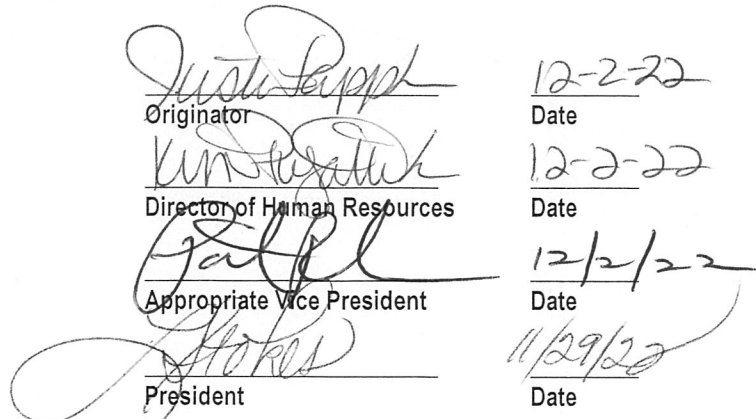 12-2-22
Originator Date
12-2-22
Director of Human Resources Date
12/2/22
Appropriate Vice President Date
Stokes 11/29/22
President Date